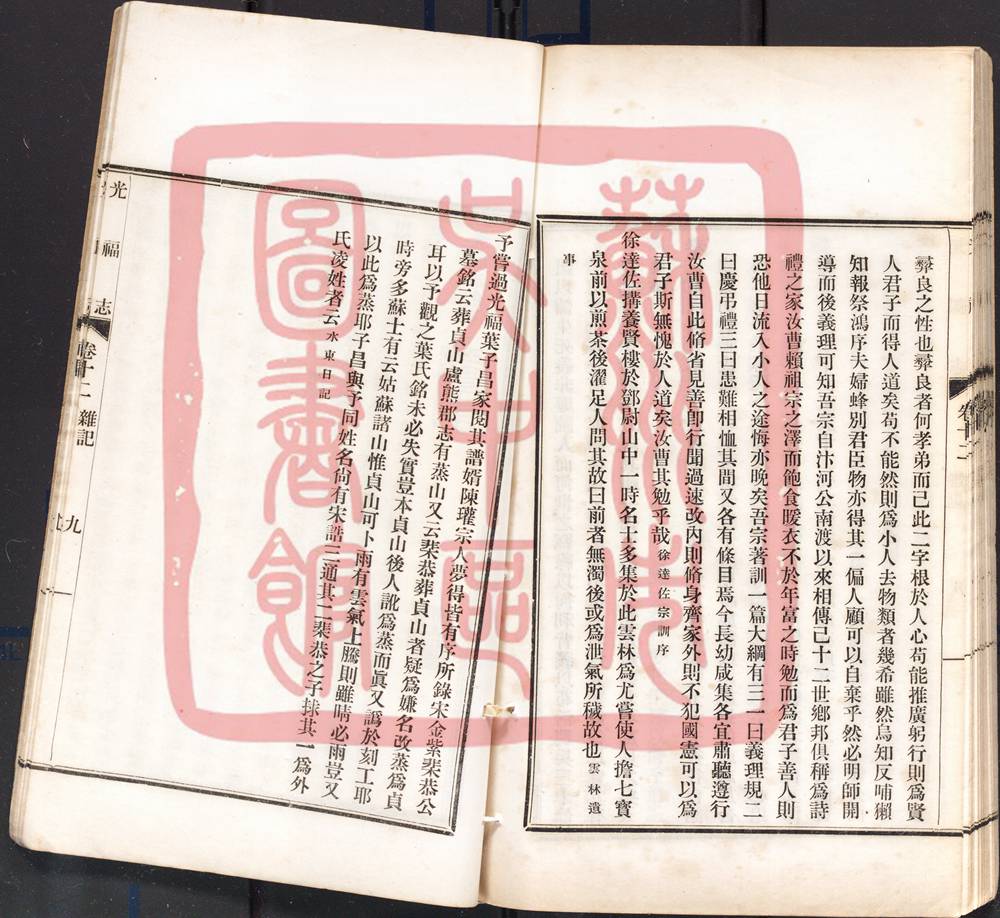 彜良之性也彜良者何孝弟而已此二字根於人心苟能推廣躬行則爲賢
人君子而得人道矣苟不能然則爲小人去物類者幾希雖然烏知反哺獺
知報祭鴻序夫婦蜂別君臣物亦得其一偏人顧可以自棄乎然必明師開
導而後義理可知吾宗自汴河公南渡以來相傳已十二世鄉邦俱稱爲詩
禮之家汝曹賴祖宗之澤而飽食暖衣不於年富之時勉而爲君子善人則
恐他日流入小人之途悔亦晚矣吾宗著訓一篇大綱有三一曰義理規二
曰慶弔禮三曰患難相恤其間又各有條目焉今長幼咸集各宜肅聽遵行
汝曹自此脩省見善卽行聞過速改內則脩身齊家外則不犯國憲可以爲
君子斯無愧於人道矣汝曹其勉乎哉徐達佐宗訓序
徐達佐搆養賢樓於鄧尉山中一時名士多集於此雲林爲尤嘗使人擔七寶
泉前以煎茶後濯足人問其故曰前者無濁後或爲泄氣所穢故也雲林遺
事
予嘗過光福葉子昌家閱其譜壻陳瓘宗人夢得皆有序所錄宋金紫棐恭公
墓銘云葬貞山盧熊郡志有蒸山又云棐恭葬貞山者疑爲嫌名改蒸爲貞
耳以予觀之葉氏銘未必失實豈本貞山後人訛爲蒸而眞又譌於刻工耶
時旁多蘇士有云姑蘇諸山惟貞山可卜雨有雲氣上騰則雖晴必雨豈又
以此爲蒸耶子昌與予同姓名尙有宋誥三通其二棐恭之子捄其一爲外
氏凌姓者云水東日記
光福志
卷十二 雜記
九
蘇州市
吳中區
圖書館